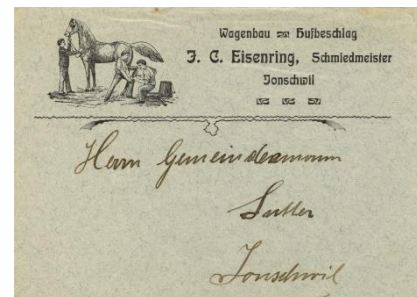 Wagenbau Hufbeschlag
J. C. Eisenring, Schmiedmeister
Jonschwil
Herrn Gemeindeamann
Sutter
Jonschwil